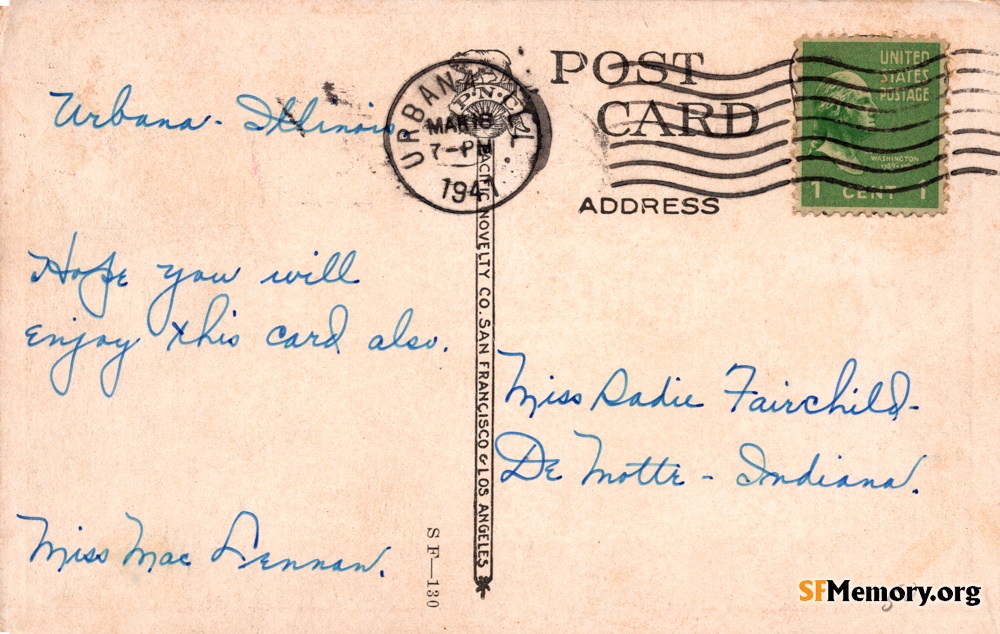 Urbana - Illinois
Hope you will
enjoy this card also.
Miss Mac Lennan.
URBANA, ILL.
MAR 18
7-PM
1947
P.N.C.
PACIFIC NOVELTY CO. SAN FRANCISCO & LOS ANGELES
SF—130
POST
CARD
ADDRESS
UNITED
STATES
POSTAGE
WASHINGTON
1 CENT 1
Miss Sadie Fairchild-
De Motte - Indiana.
SFMemory.org